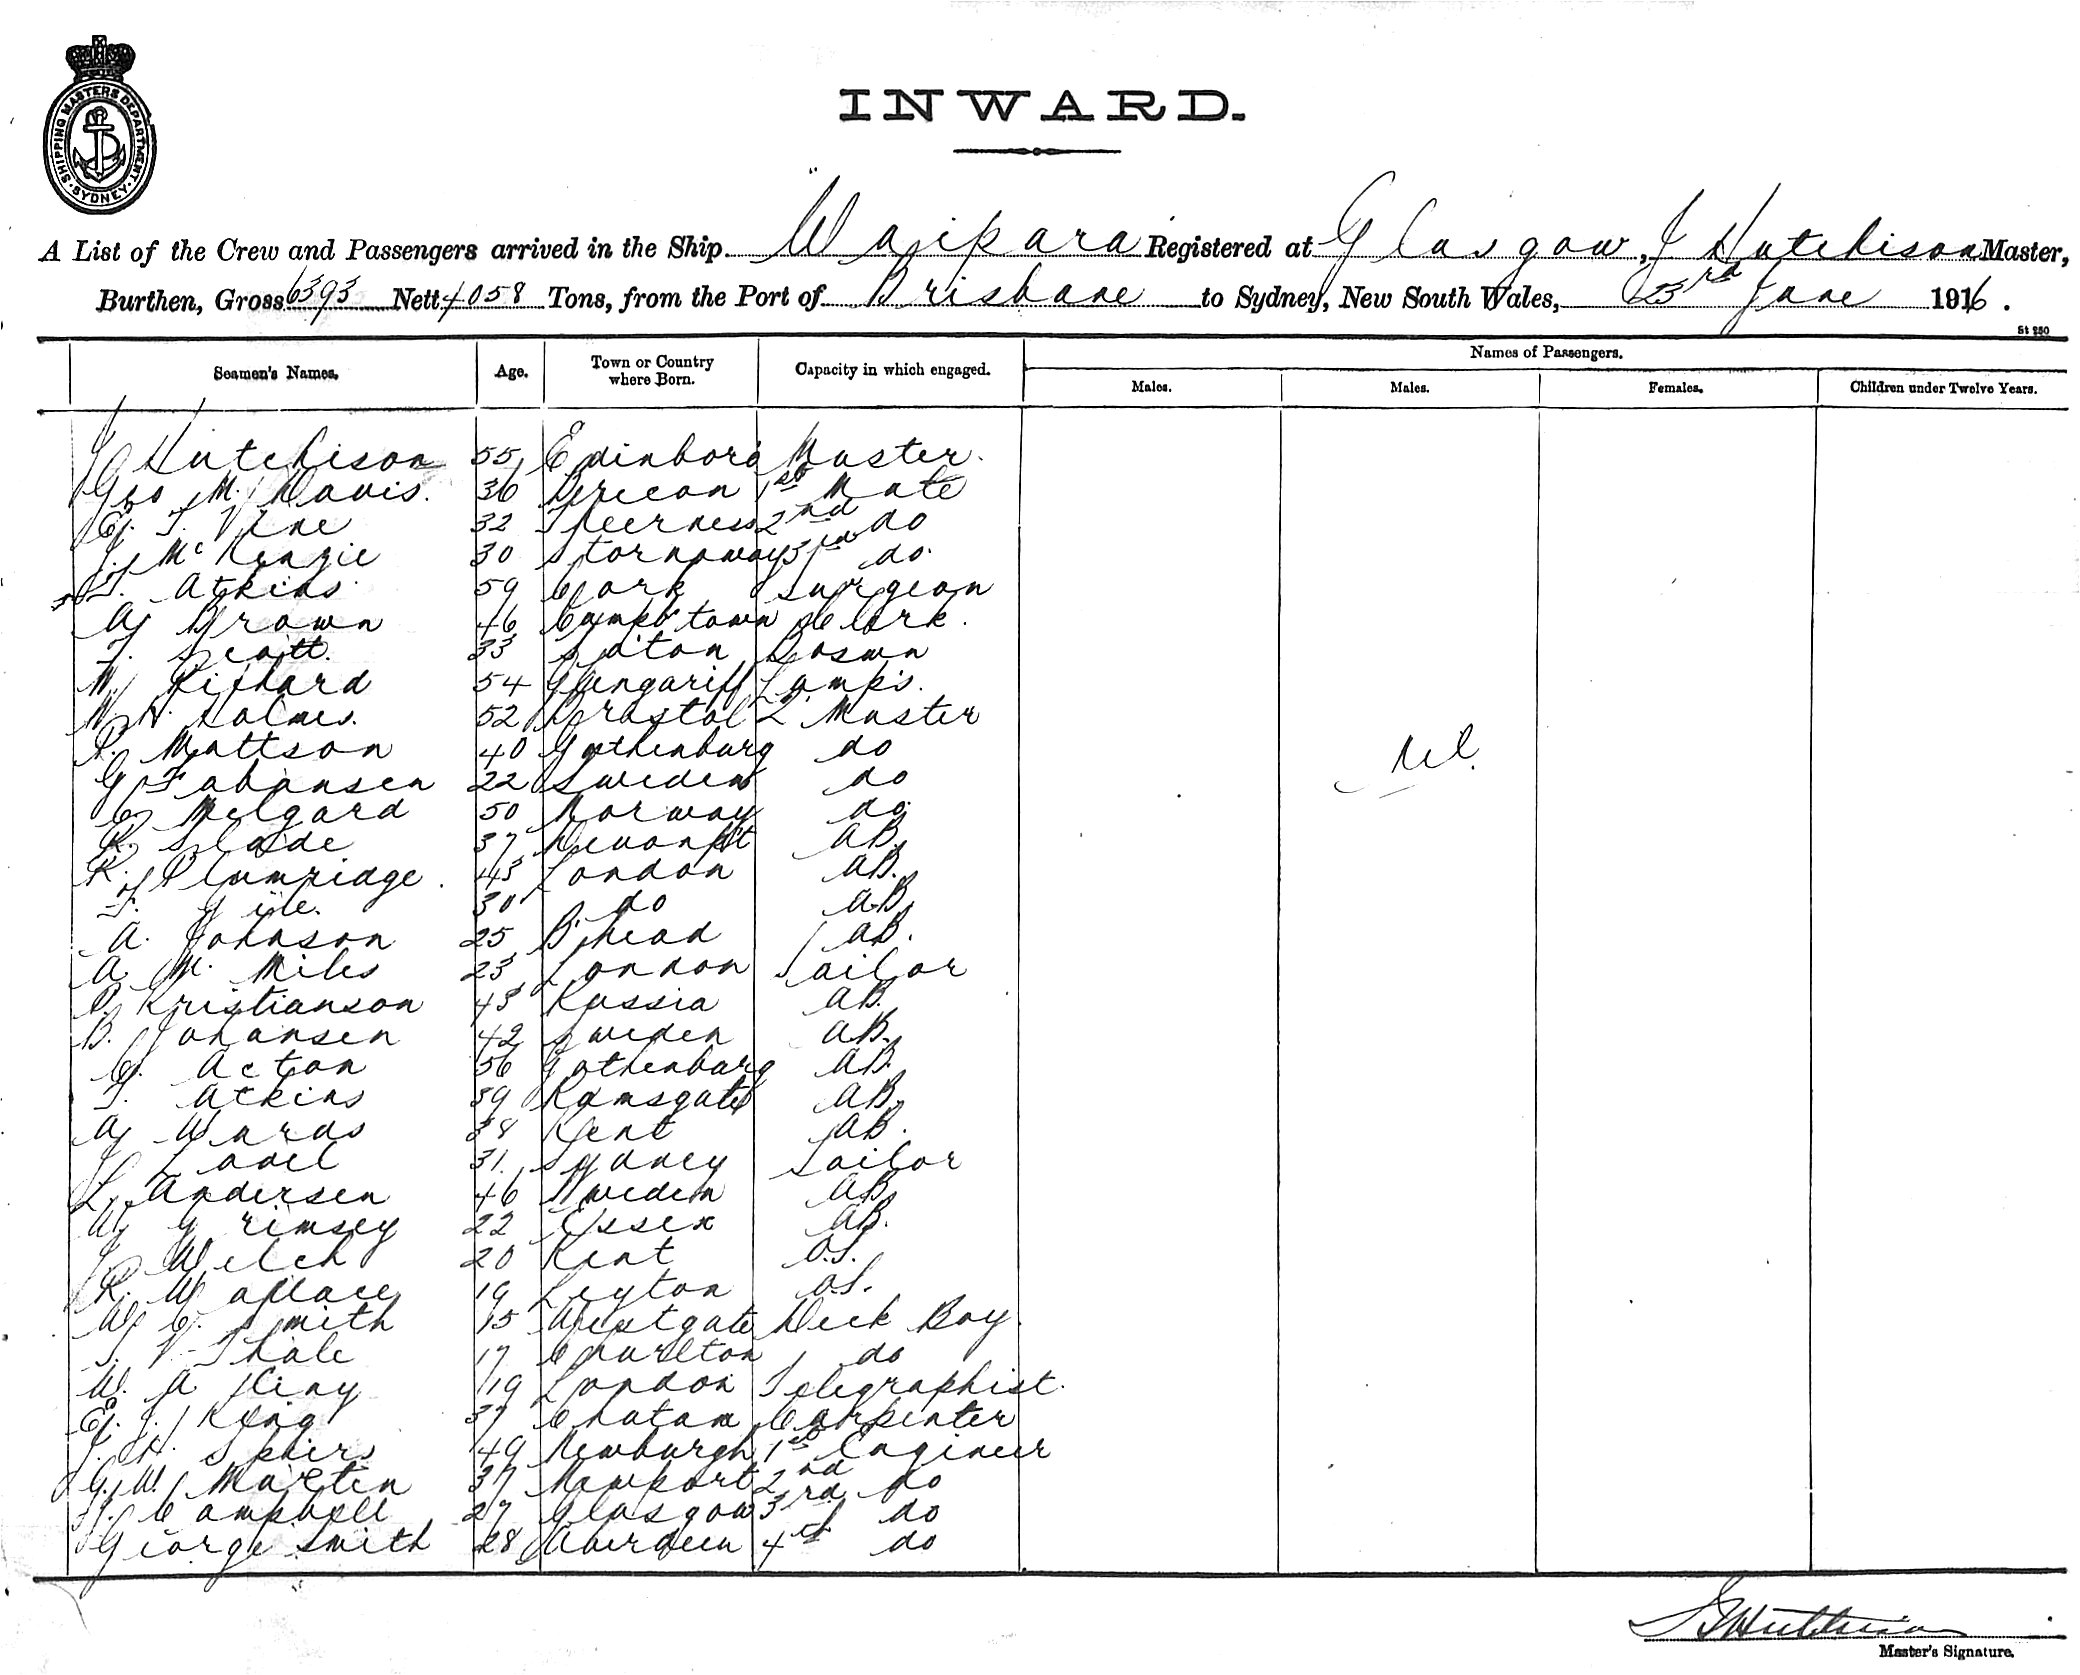 SHIPPING MASTERS DEPARTMENT. SYDNEY
INWARD.
A List of the Crew and Passengers arrived in the Ship Waipara Registered at Glasgow, J Hutchison Master,
Burthen, Gross 6393 Nett 4058 Tons, from the Port of Brisbane to Sydney, New South Wales, 23rd June 1916.
St 250
Seamen's Names. Age. Town or Country where Born. Capacity in which engaged. Names of Passengers.
Males. Males. Females. Children under Twelve Years.
J Hutchison 55 Edinboro Master.
Geo M. Davis. 36 Brecon 1st Mate
E. T. Vine 32 Sheerness 2nd do
J. McKenzie 30 Stornoway 3rd do.
T. Atkins 59 Cork Surgeon
A Brown 46 Campbtown Clerk.
T. Scott. 33 Bosun
W. Richard 54 Glengariff Lamps.
W. H. Holmes. 52 Bristol Q. Master
P. Mattson 40 Gothenburg do
G Fabansen 22 Sweden do
Nil.
C Melgard 50 Norway do
R. Slade 37 Devonpt AB.
R. Plumridge. 43 London AB.
T. 30 do AB
A. Johnson 25 B'head AB.
A W. Miles 23 London Sailor
P. Kristianson 43 Russia AB.
B. Johansen 42 Sweden AB.
C. Acton 56 Gothenburg AB.
T. Atkins 39 Ramsgate AB.
A Wards 38 Kent AB.
J 31. Sydney Sailor
L. Andersen 46 Sweden AB
W Grimsey 22 Essex AB.
J Welch 20 Kent O.S.
R. Wallace 19 Leyton O.S.
W C. Smith 15 Westgate Deck Boy.
T. V Thale 17 Charlton do
W. A King 19 London Telegraphist.
E. J. King 37 Chatam Carpenter
J. H. Spiers 49 Newburgh 1st Engineer
G. W. Martin 37 Newport 2nd do
H. Campbell 27 Glasgow 3rd do
George Smith 28 Aberdeen 4th do
J Hutchison
Master's Signature.